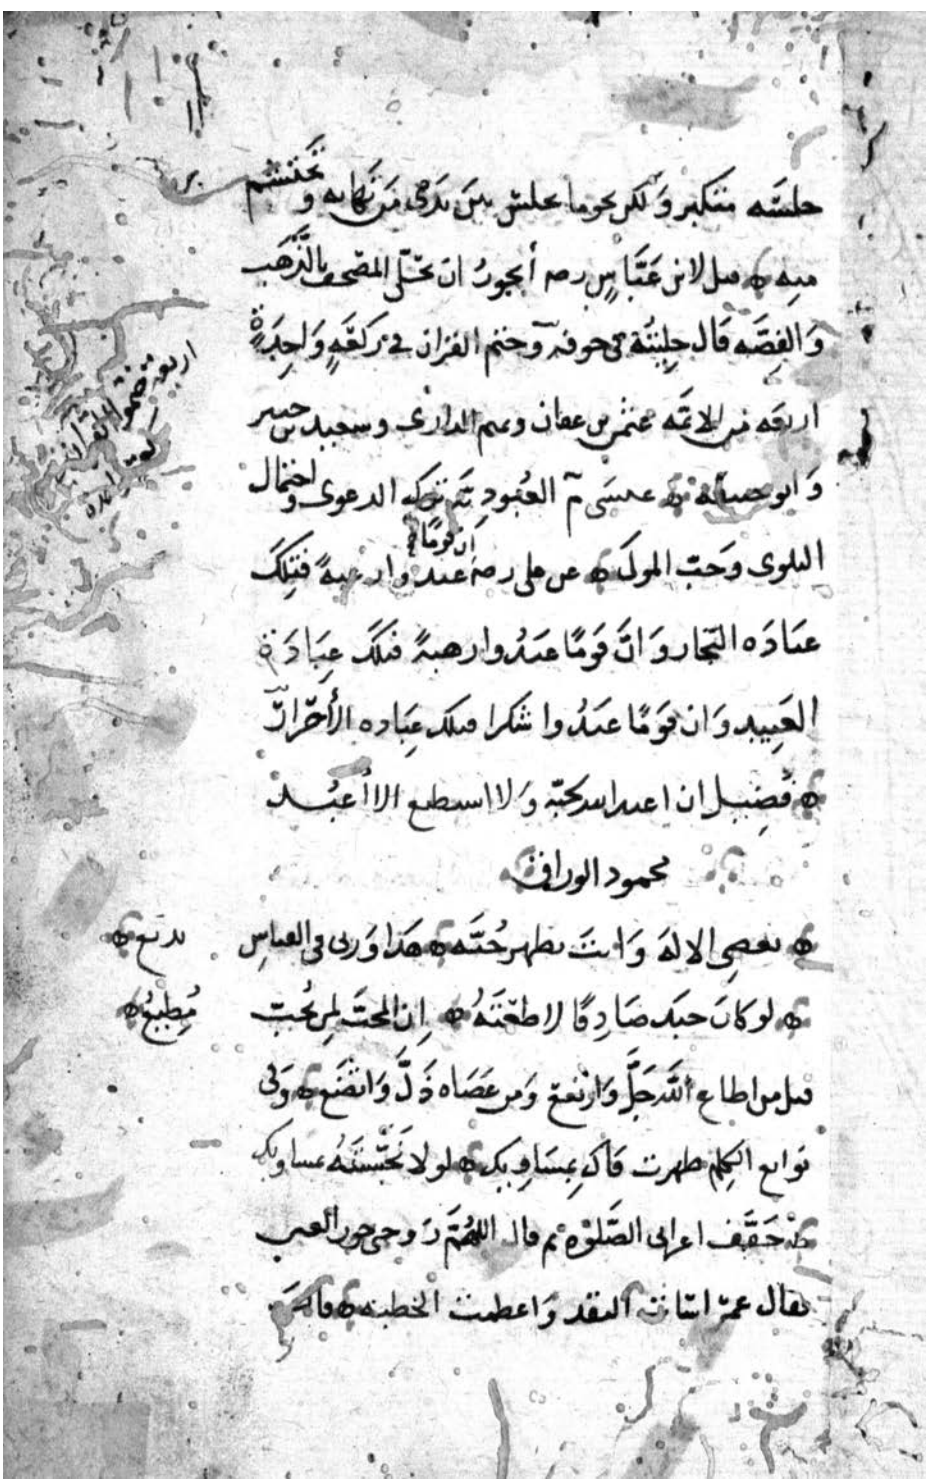 جلسة متكبر ولكن نحوما يجلس بين يدي من تهابه وتحتشم
منه قيل لابن عباس رضه أيجوز ان تحلى المصحف بالذهب
والفضة قال حليته في جوفه وختم القران في ركعة واحدة
اربعة من الائمة عثمن بن عفان وتميم الدارى وسعيد بن جبير
وابو حنيفة عيسى م العبودية ترك الدعوى واحتمال
البلوى وحب المولى عن على رضه ان قوما عبدوا رغبة فتلك
عبادة التجار وان قوما عبدوا رهبة فتلك عبادة
العبيد وان قوما عبدوا شكرا فتلك عبادة الأحرار
فضيل ان اعبد الله محبة ولا استطيع الا أعبد
محمود الوراق
تعصى الاله وانت تظهر حبه هذا وربى فى القياس بديع
لو كان حبك صادقا لاطعته إن المحب لمن يحب مطيع
قيل من اطاع الله جل وارتفع ومن عصاه ذل واتضع وفى
نوابغ الكلم طهرت فاك بمساويك لولا نجسته بمساويك
خفف اعرابى الصلوة ثم قال اللهم زوجنى حور العين
فقال عمر اسات النقد واعظمت الخطبة
اربعة ختموا القرآن